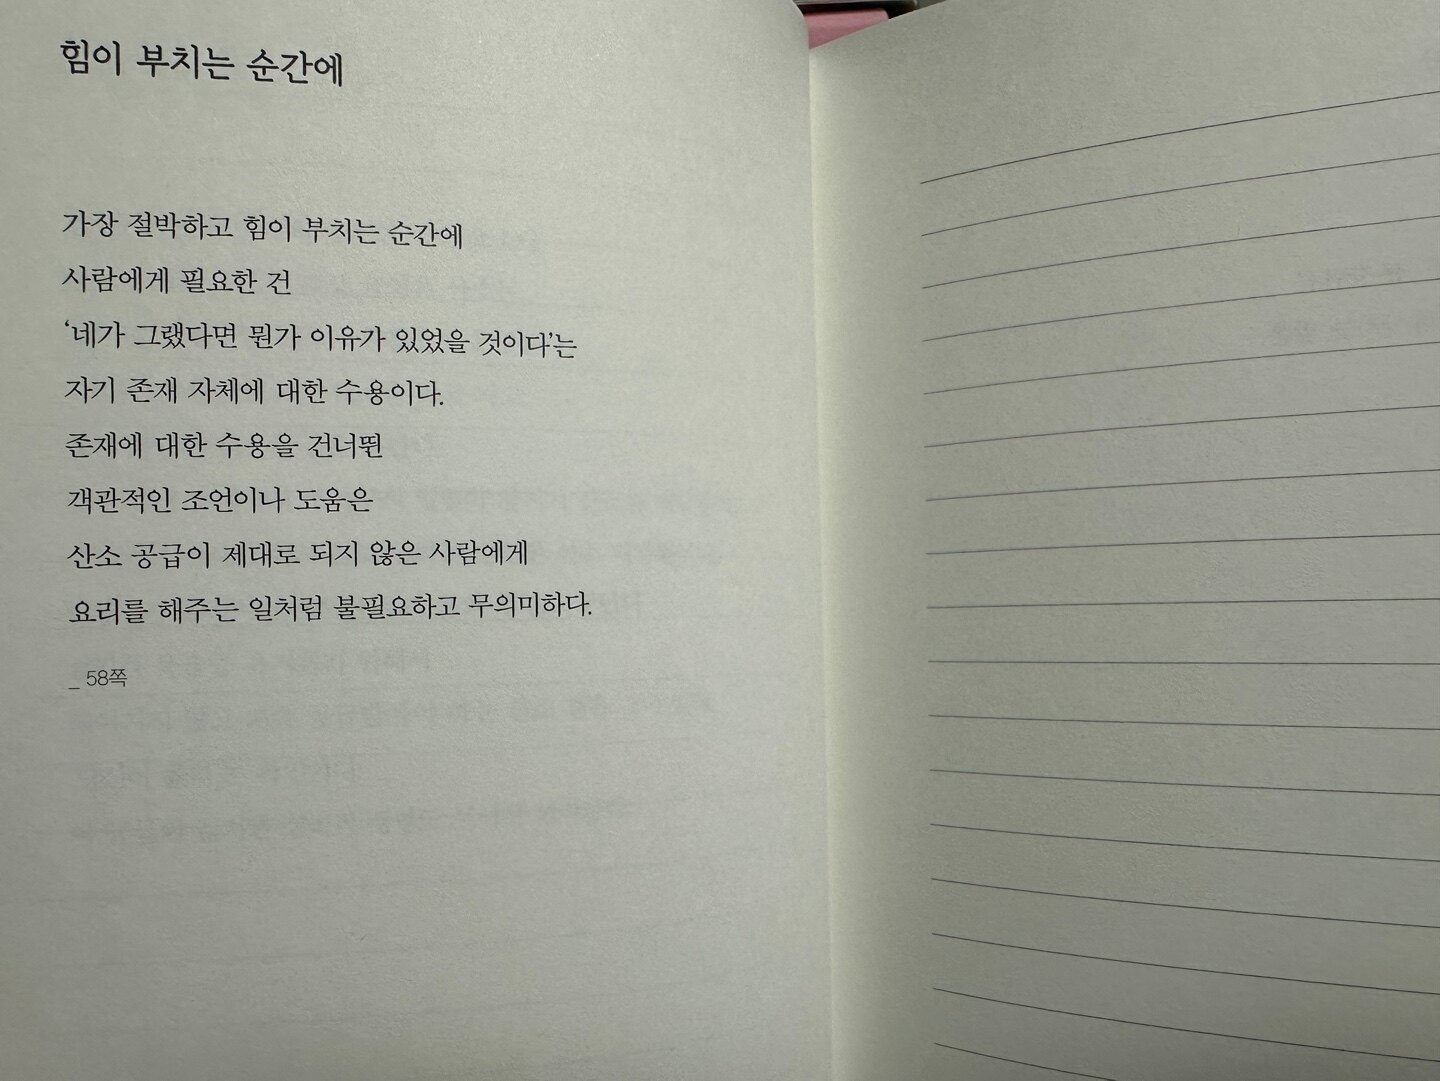 힘이 부치는 순간에
가장 절박하고 힘이 부치는 순간에
사람에게 필요한 건
‘네가 그랬다면 뭔가 이유가 있었을 것이다’는
자기 존재 자체에 대한 수용이다.
존재에 대한 수용을 건너뛴
객관적인 조언이나 도움은
산소 공급이 제대로 되지 않은 사람에게
요리를 해주는 일처럼 불필요하고 무의미하다.
_ 58쪽